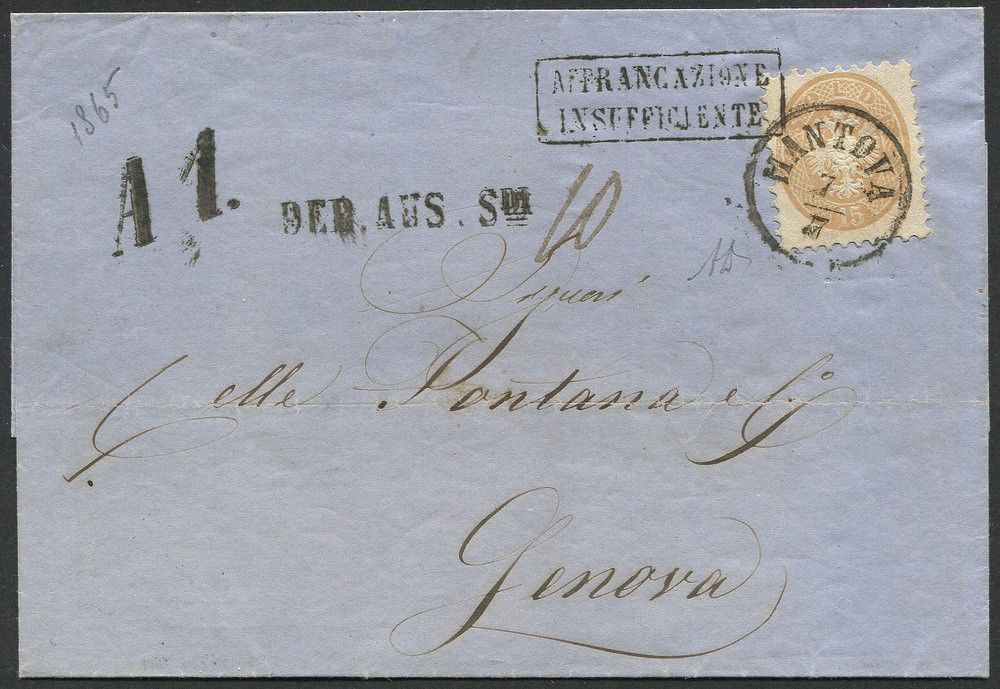 1865
AFFRANCAZIONE
INSUFFICIENTE
MANTOVA
7
15
A 1.
DEB. AUS. SDI
10
Signori
elle Fontana e C
Genova